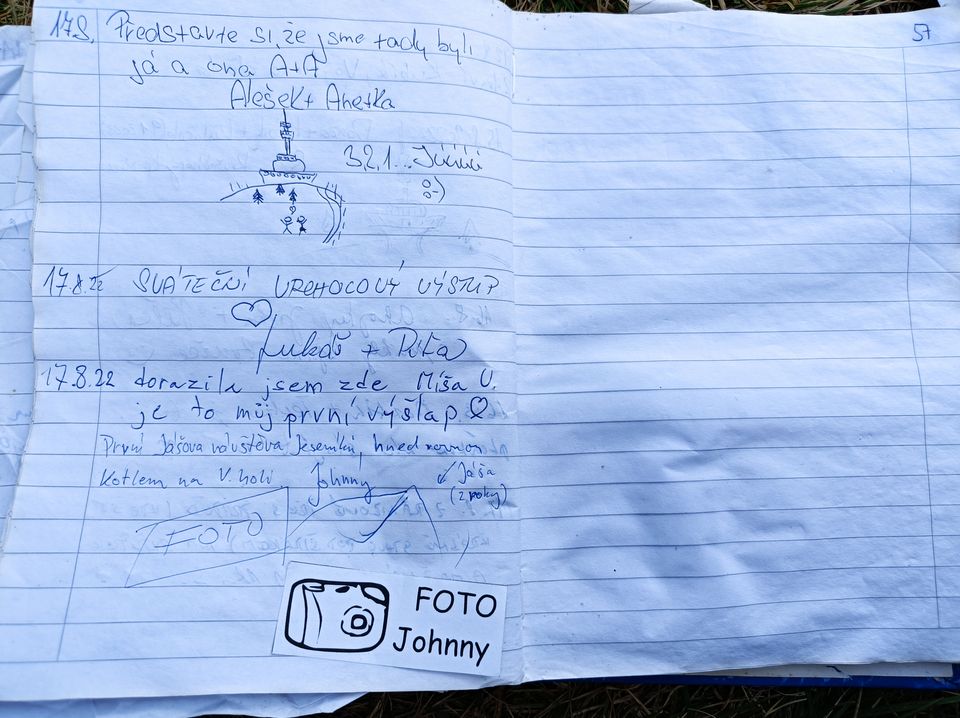 17.8. Představte si, že jsme tady byli
já a ona A+A
Alešek+ Anetka
3,2,1... Júúúú
8-)
17.8.22 SVÁTEČNÍ VRCHOLOVÝ VÝSTUP
Lukáš + Píťa
17.8.22 dorazila jsem zde Míša U.
je to můj první výšlap
První Jášova návštěva Jeseníků, hned rovnou
Kotlem na V. holi. Johnny
Jáša
(2 roky)
FOTO
FOTO
Johnny
57